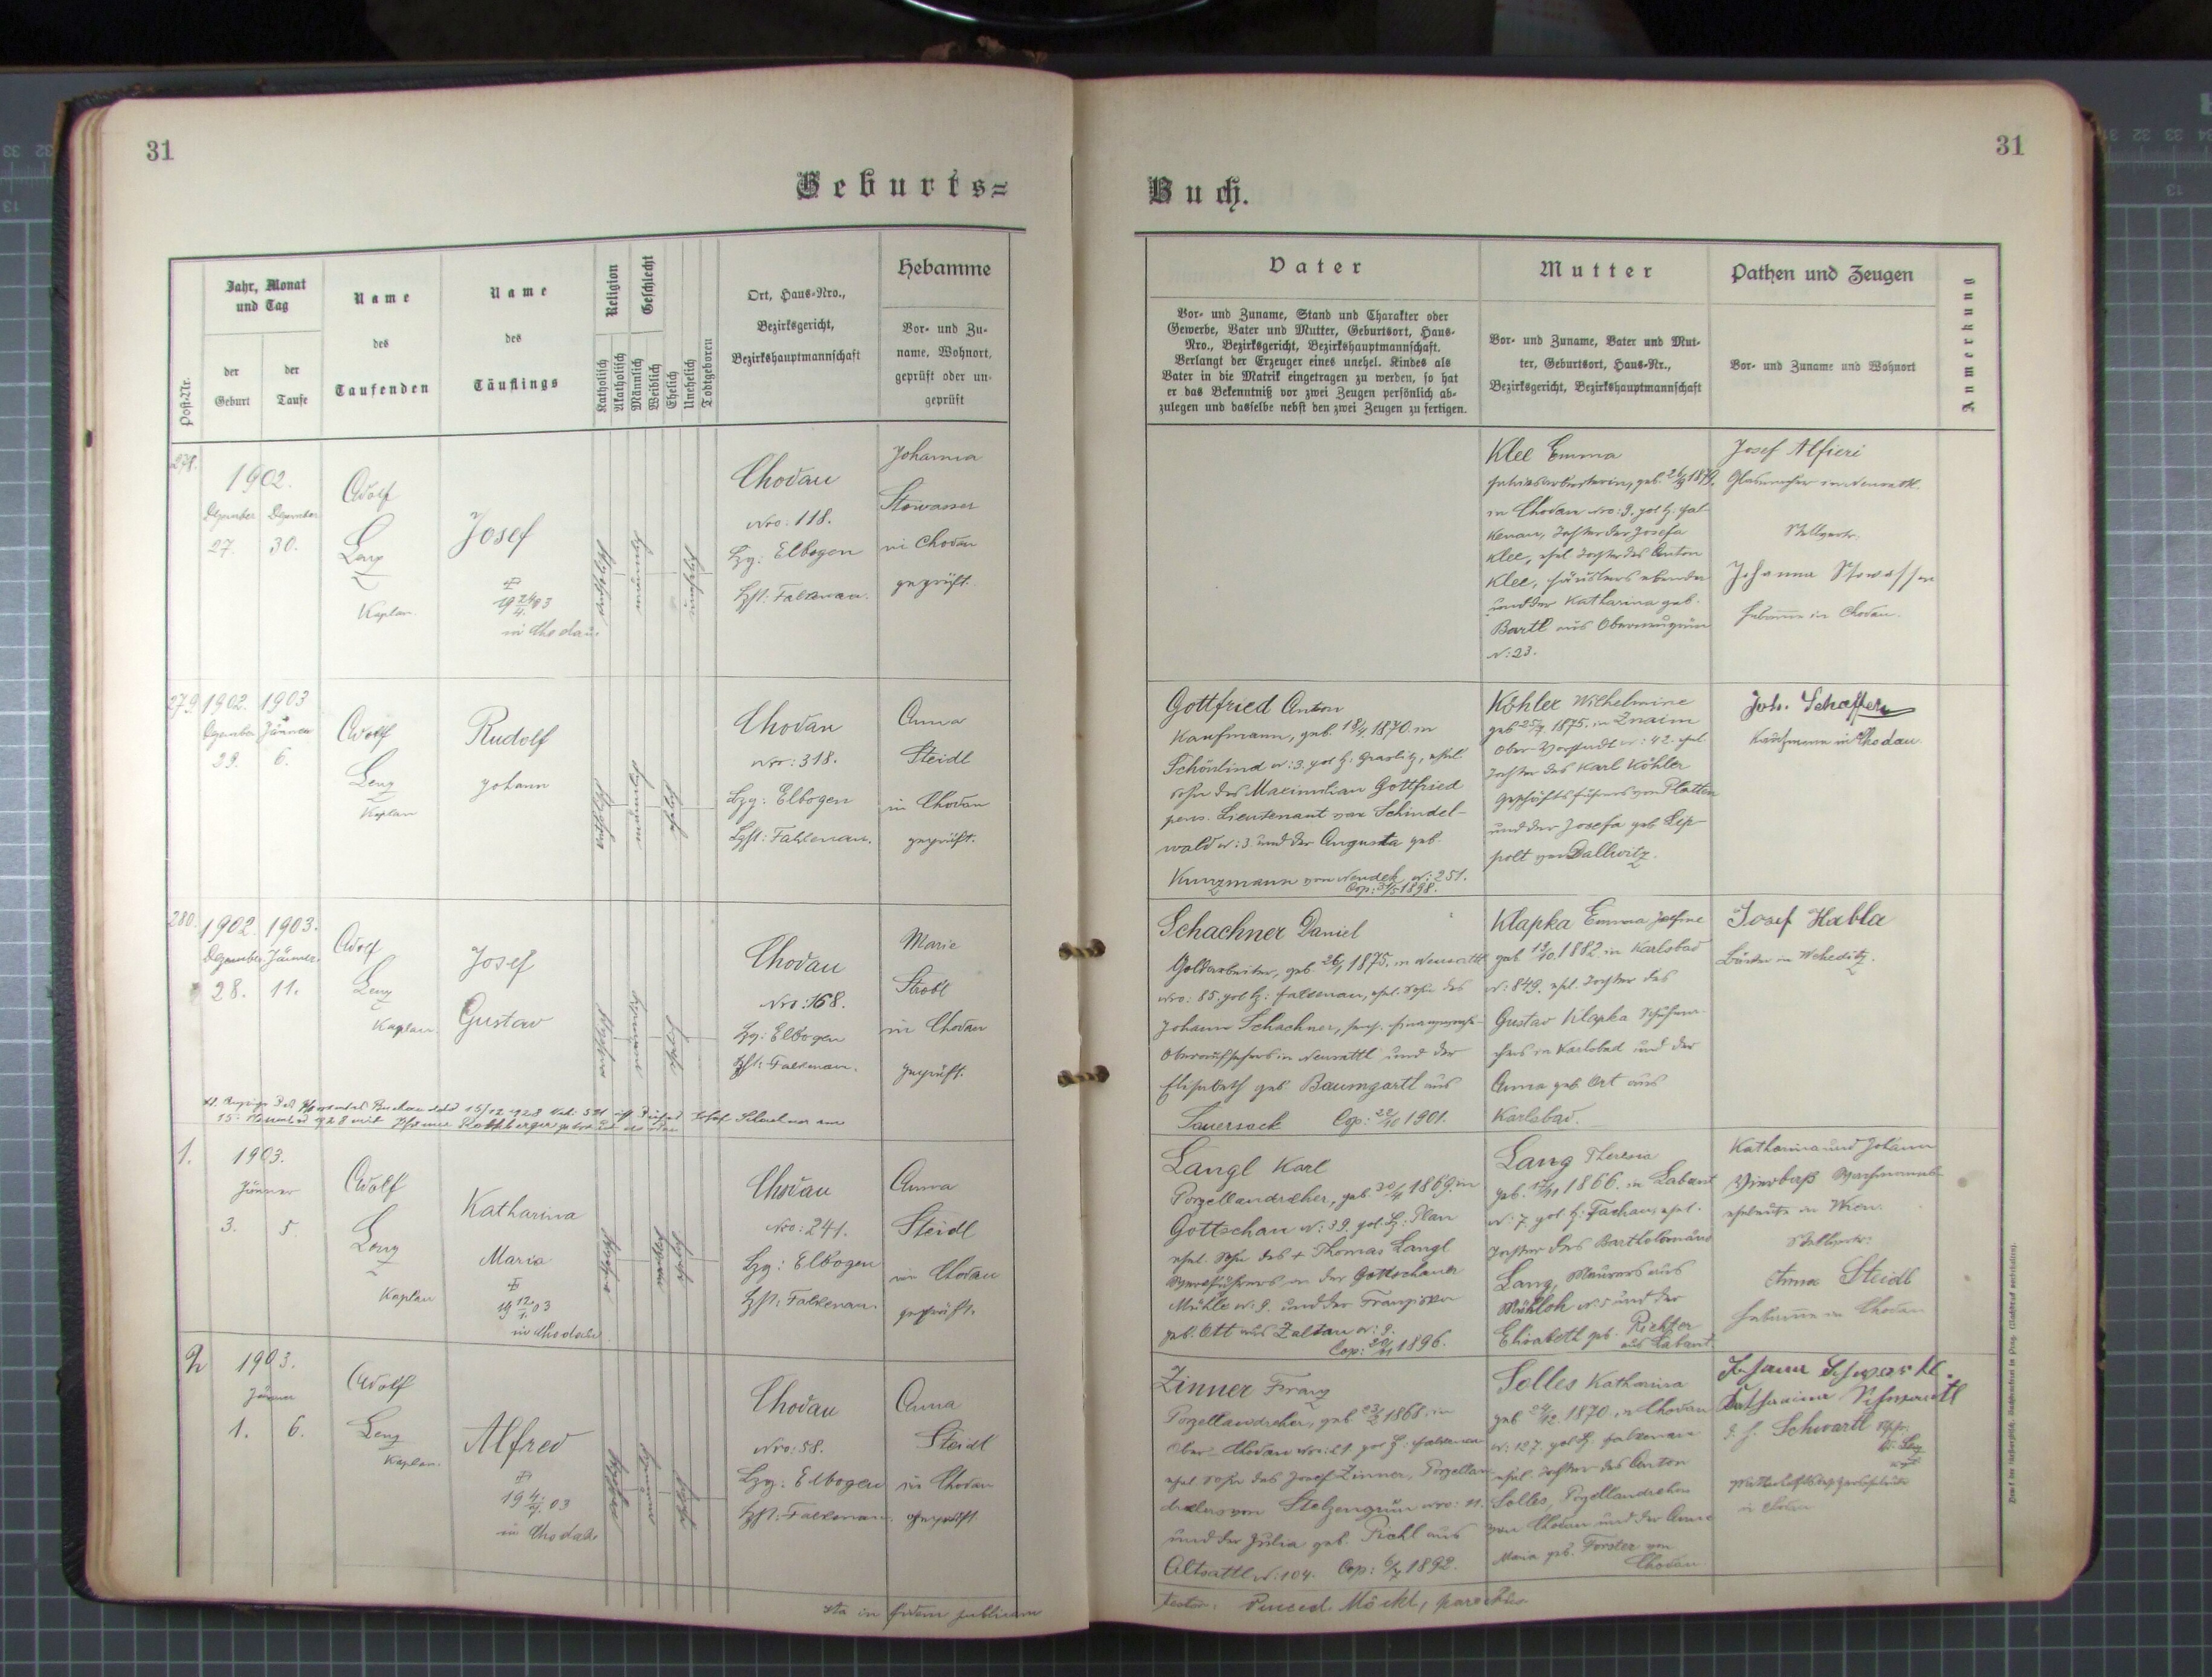 31
31
Geburts=
Buch.
Post-Nr.
Jahr, Monat
und Tag
der
Geburt
der
Taufe
Name
des
Taufenden
Name
des
Täuflings
Religion
Katholisch
Akatholisch
Geschlecht
Männlich
Weiblich
Ehelich
Unehelich
Todtgeboren
Ort, Haus-Nro.,
Bezirksgericht,
Bezirkshauptmannschaft
Hebamme
Vor- und Zu-
name, Wohnort,
geprüft oder un-
geprüft
Vater
Vor- und Zuname, Stand und Charakter oder
Gewerbe, Vater und Mutter, Geburtsort, Haus-
Nro., Bezirksgericht, Bezirkshauptmannschaft.
Verlangt der Erzeuger eines unehel. Kindes als
Vater in die Matrik eingetragen zu werden, so hat
er das Bekenntniß vor zwei Zeugen persönlich ab-
zulegen und dasselbe nebst den zwei Zeugen zu fertigen.
Mutter
Vor- und Zuname, Vater und Mut-
ter, Geburtsort, Haus-Nr.,
Bezirksgericht, Bezirkshauptmannschaft
Pathen und Zeugen
Vor- und Zuname und Wohnort
Anmerkung
278.
1902.
Dezember Dezember
27. 30.
Adolf
Lenz
Kaplan.
Josef
19 24/4. 03
in Chodau.
katholisch
männlich
unehelich
Chodau
Nro: 118.
Bzg: Elbogen
Bzh: Falkenau.
Johanna
Stowasser
in Chodau
geprüft.
Klee Emma
Fabriksarbeiterin, geb. 1879.
in Chodau Nro: 9. pol. B: Fal-
kenau, Tochter der Josefa
Klee, ehel. Tochter des Anton
Klee, Häuslers ebenda
und der Katharina geb.
Bartl aus Oberneugrün
N: 23.
Josef Alfieri
Glasmacher in Neusattl.
Stellvertr.
Johanna Stowasser
Hebamme in Chodau.
279. 1902. 1903
Dezember Jänner
29. 6.
Adolf
Lenz
Kaplan
Rudolf
Johann
katholisch
männlich
ehelich
Chodau
Nro: 318.
Bzg: Elbogen
Bzh: Falkenau.
Anna
Steidl
in Chodau
geprüft.
Gottfried Anton
Kaufmann, geb. 18/4 1870. in
Schönlind N: 3. pol. B: Graslitz, ehel.
Sohn des Maximilian Gottfried
pens. Lieutenant von Schindel-
wald N: 3. und der Augusta geb.
Kunzmann von Neudek N: 251.
Cop: 31/5 1898.
Köhler Wilhelmine
geb. 1875. in Znaim
Ober-Vorstadt N: 42. ehel.
Tochter des Karl Köhler
Geschäftsführers von Platten
und der Josefa geb. Lip-
polt von Dallwitz.
Joh. Schaffer
Kaufmann in Chodau.
280. 1902. 1903.
Dezember Jänner.
28. 11.
Adolf
Lenz
Kaplan.
Josef
Gustav
katholisch
männlich
ehelich
Chodau
Nro: 168.
Bzg: Elbogen
Bzh: Falkenau.
Marie
Strobl
in Chodau
geprüft.
Schachner Daniel
Goldarbeiter, geb. 26/1 1875. in Neusattl
Nro: 85. pol. B: Falkenau, ehel. Sohn des
Johann Schachner,
Oberaufsehers in Neusattl und der
Elisabeth geb. Baumgartl aus
Sauersack Cop: 22/10 1901.
Klapka Emma
geb. 1882. in Karlsbad
N: 849. ehel. Tochter des
Gustav Klapka Schuhma-
chers in Karlsbad und der
Anna geb. Ort aus
Karlsbad.
Josef Habla
in Weheditz.
1.
1903.
Jänner
3. 5.
Adolf
Lenz
Kaplan
Katharina
Maria
19 12/1. 03
in Chodau
katholisch
weiblich
ehelich
Chodau
Nro: 241.
Bzg: Elbogen
Bzh: Falkenau.
Anna
Steidl
in Chodau
geprüft.
Langl Karl
Porzellandreher, geb. 1869. in
Gottschau N: 39. pol. B: Plan
ehel. Sohn des + Thomas Langl
Werkführers in der Gottschauer
Mühle N: 9. und der Franziska
geb. Ott aus Zaltau N: 9.
Cop: 1896.
Lang Theresia
geb. 1866. in Labant
N: 7. pol. B: Tachau, ehel.
Tochter des Bartholomäus
Lang, Maurers aus
Mühlloh N: 5 und der
Elisabeth geb. Richter
aus Labant.
Katharina und Johann
in Wien.
Stellvertr:
Anna Steidl
Hebamme in Chodau
2
1903.
Jänner
1. 6.
Adolf
Lenz
Kaplan.
Alfred
19 4/4. 03
in Chodau
katholisch
männlich
ehelich
Chodau
Nro: 58.
Bzg: Elbogen
Bzh: Falkenau.
Anna
Steidl
in Chodau
geprüft.
Zinner Franz
Porzellandreher, geb. 1868. in
Ober-Chodau Nro: 21. pol. B: Falkenau
ehel. Sohn des Josef Zinner, Porzellan-
drehers von Stelzengrün Nro: 11.
und der Julia geb. Pichl aus
Altsattl N: 104. Cop: 1892.
Solles Katharina
geb. 24/12 1870. in Chodau
N: 127. pol. B: Falkenau
ehel. Tochter des Anton
Solles, Porzellandrehers
von Chodau und der Anna
Maria geb. Forster von
Chodau.
Johann Schwartl.
Katharina Schwartl
Schwartl
Ita in fidem publicam
testor: Vincenz Möckl, parochus